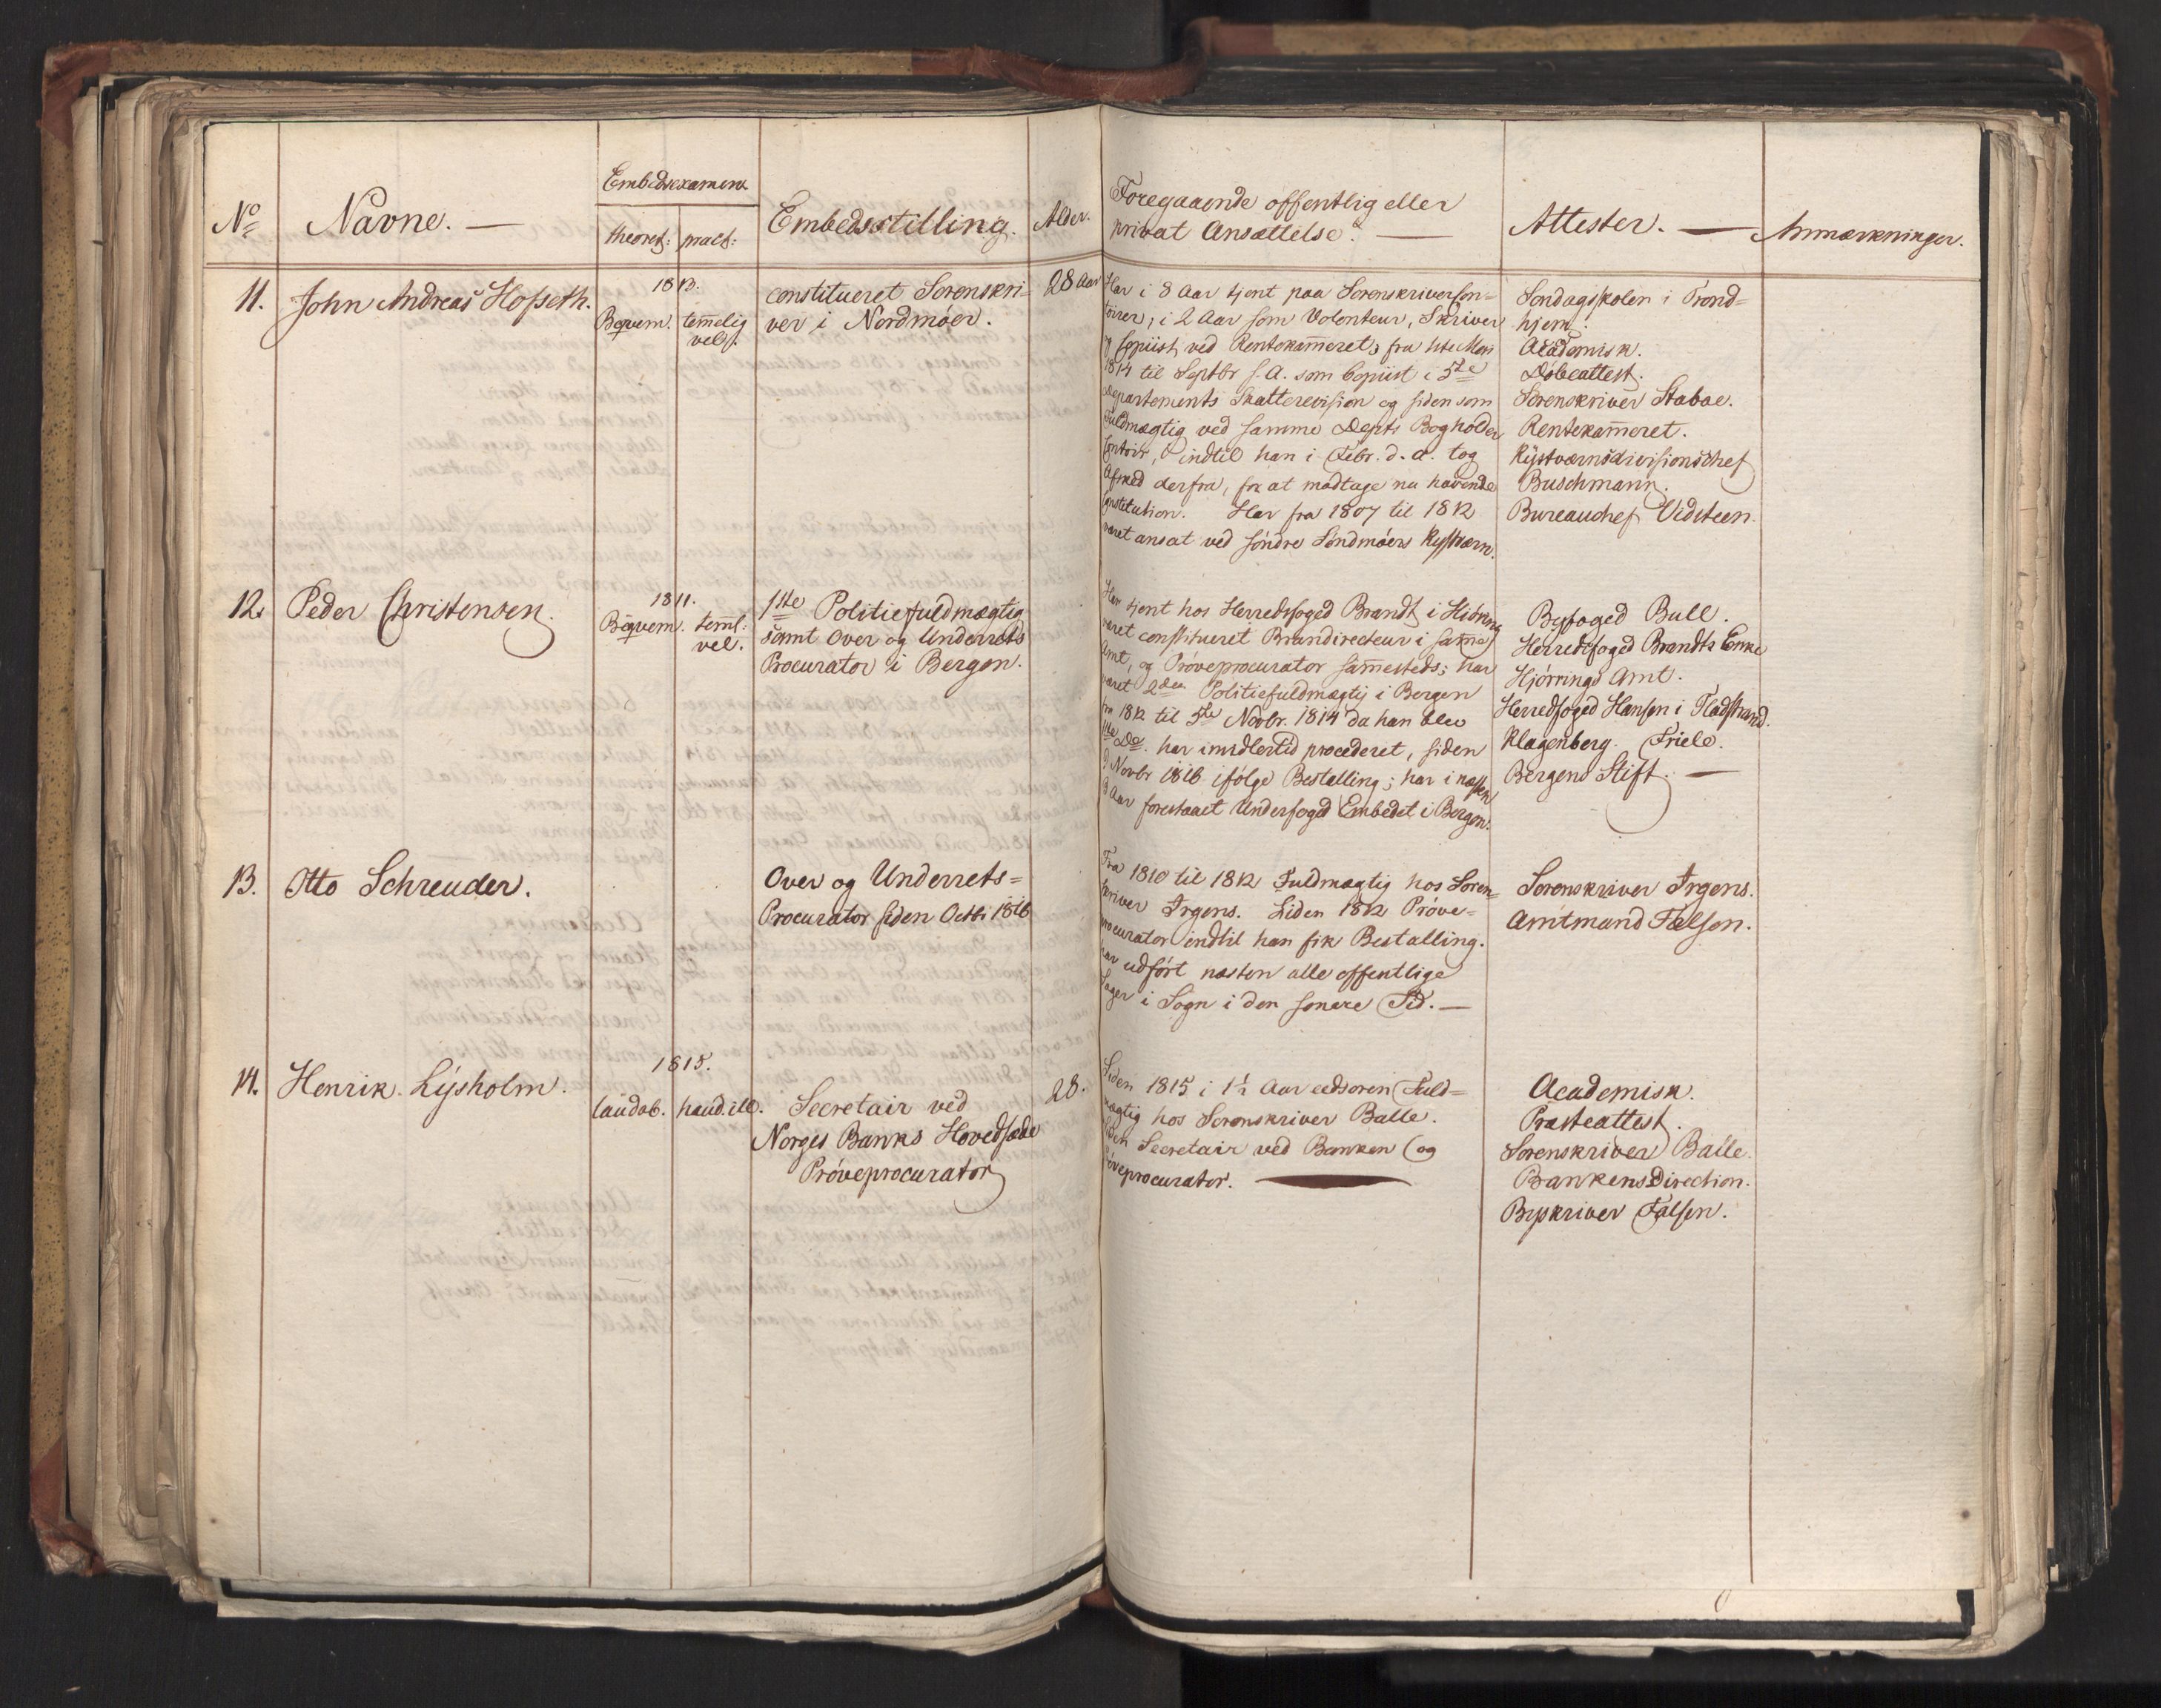 No
Navne. —
Embedsexamen
theoret:
pract:
Embedsstilling.
Alder.
Foregaaende offentlig eller
privat Ansættelse. —
Attester. —
Anmærkninger.
11.
John Andreas Hofseth.
1813.
Beqvem.
temmelig
vel.
constitueret Sorenskri-
ver i Nordmøer.
28 Aar
Har i 8 Aar tjent paa Sorenskrivercon=
toirer, i 2 Aar som Volonteur, Skriver
og Copiist ved Rentekammeret, fra
1814 til Septbr s. A. som Copiist i 5te
Departements Skatterevision og siden som
Fuldmægtig ved samme Depts Bogholder
Contoir, indtil han i Febr. d. A. tog
Afsked derfra, for at modtage nu havende
Constitution. Har fra 1807 til 1812
været ansat ved søndre Søndmøers Kystværn.
Søndagsskolen i Trond=
hjem.
Academisk.
Døbeattest.
Sorenskriver Stabae.
Rentekammeret.
Kystværnsdivisionschef
Buschmann.
Bureauchef Vidsteen.
12.
Peder Christensen.
1811.
Beqvem.
teml:
vel.
1ste Politiefuldmægtig
samt Over og Underrets
Procurator i Bergen.
Har tjent hos Herredsfoged Brandt i Hiörring
været constitueret Branddirecteur i samme
Amt, og Prøveprocurator sammesteds; har
været 2den Politiefuldmægtig i Bergen
fra 1812 til 5te Novbr. 1814 da han blev
1ste Do. har imidlertid procederet, siden
Novbr 1816 ifølge Bestalling; har i næsten
3 Aar forestaaet Underfoged Embedet i Bergen.
Byfoged Bull.
Herredsfoged Brandts Enke
Hjørrings Amt.
Herredsfoged Hansen i Fladstrand.
Klagenberg. Friele.
Bergens Stift. —
13.
Otto Schreuder.
Over og Underrets=
Procurator siden Octbr 1816
Fra 1810 til 1812 Fuldmægtig hos Soren=
skriver Irgens. Siden 1812 Prøve=
procurator indtil han fik Bestalling.
har udført næsten alle offentlige
Sager i Sogn i den senere Tid. —
Sorenskriver Irgens.
Amtmand Falsen.
14.
Henrik Lysholm.
1815.
laudab.
haud. ill.
Secretair ved
Norges Banks Hovedsæde
Prøveprocurator
28.
Siden 1815 i 1½ Aar edsvoren Fuld=
mægtig hos Sorenskriver Balle.
siden Secretair ved Banken og
Prøveprocurator. —
Academisk.
Præsteattest.
Sorenskriver Balle.
Bankens Direction.
Byskriver Falsen.